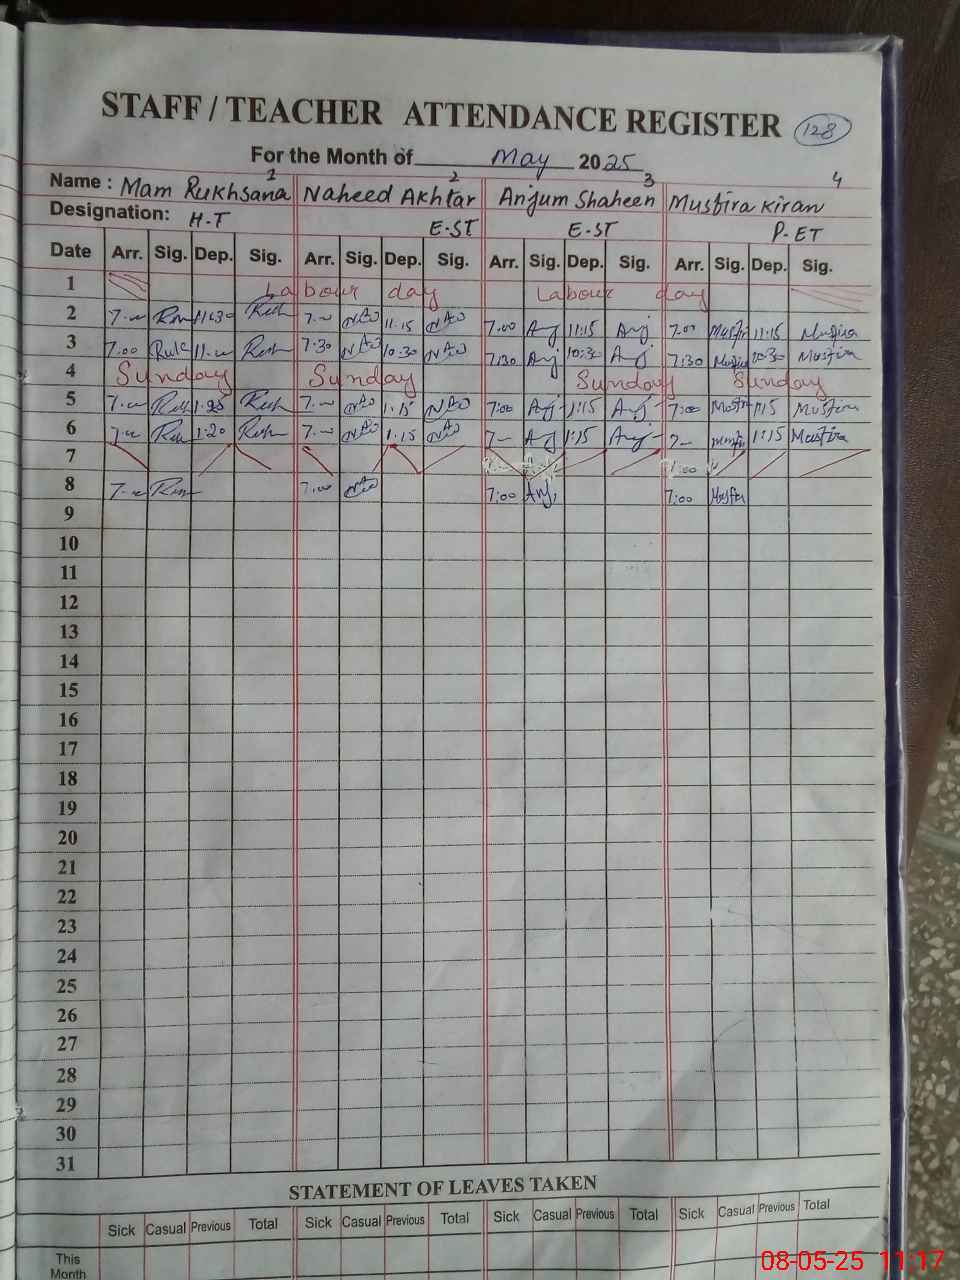 STAFF / TEACHER ATTENDANCE REGISTER 128
For the Month of May 2025
1 2 3 4
Name : Mam Rukhsana Naheed Akhtar Anjum Shaheen Musfira Kiran
Designation: H-T E-ST E-ST P-ET
Date Arr. Sig. Dep. Sig. Arr. Sig. Dep. Sig. Arr. Sig. Dep. Sig. Arr. Sig. Dep. Sig.
1 Labour day Labour day
2 7.00 11:30 7.00 11.15 7.00 Anj 11:15 Anj 7.00 11:15 Musfira
3 7.00 11.00 7.30 10.30 7:30 Anj 10:30 Anj 7:30 10:30 Musfira
4 Sunday Sunday Sunday Sunday
5 7.00 1.20 7.00 1.15 7:00 Anj 1:15 Anj 7:00 1:15 Musfira
6 7.00 1.20 7.00 1.15 7- Anj 1:15 Anj 7- 1:15 Musfira
7 7:00
8 7.00 7.00 7:00 Anj 7:00 Musfira
9
10
11
12
13
14
15
16
17
18
19
20
21
22
23
24
25
26
27
28
29
30
31
STATEMENT OF LEAVES TAKEN
Sick Casual Previous Total Sick Casual Previous Total Sick Casual Previous Total Sick Casual Previous Total
This
Month
08-05-25 11:17